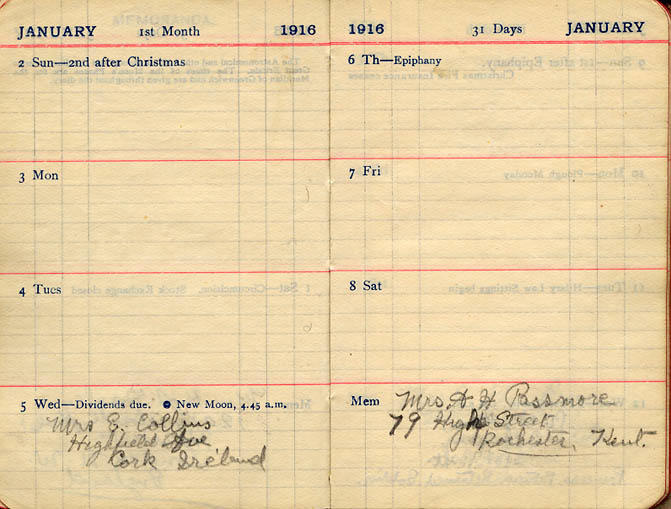 JANUARY 1st Month 1916
2 Sun—2nd after Christmas
3 Mon
4 Tues
5 Wed—Dividends due. ● New Moon, 4.45 a.m.
Mrs E. Collins
Highfield Ave
Cork Ireland
1916 31 Days JANUARY
6 Th—Epiphany
7 Fri
8 Sat
Mem
Mrs A H Passmore
79 High Street
Rochester, Kent.